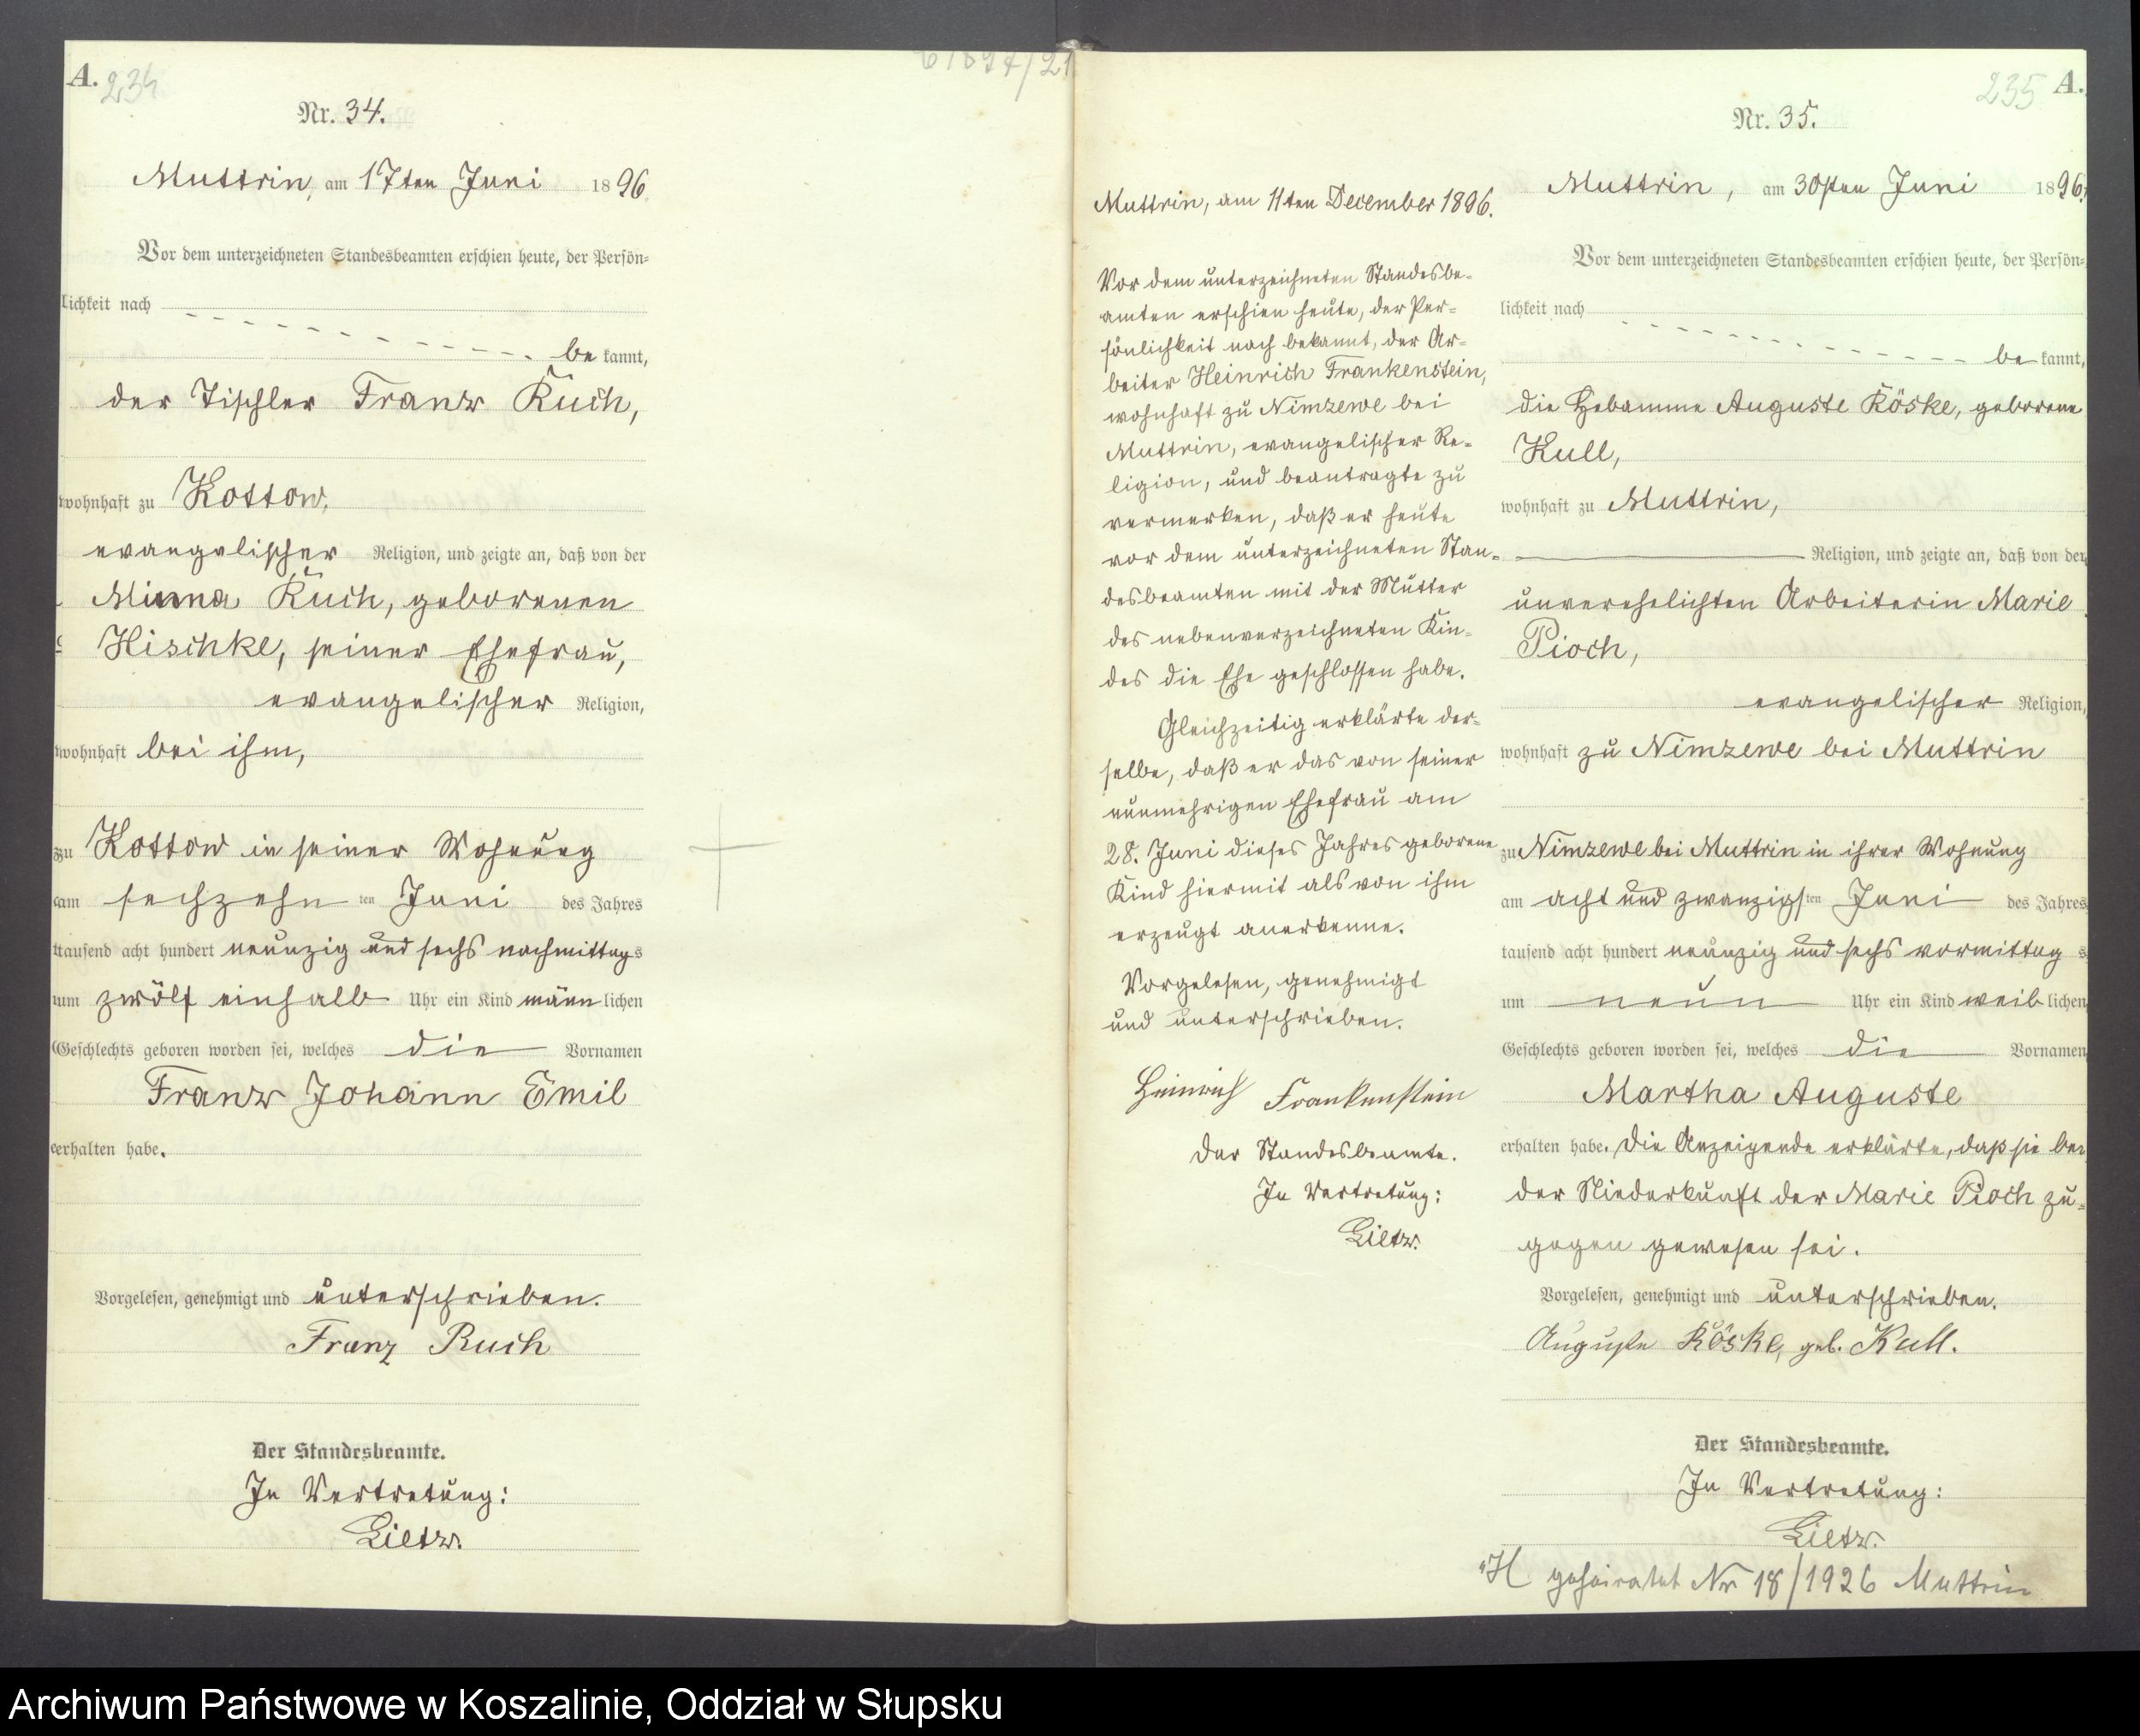 A. 234
Nr. 34.
Muttrin, am 17ten Juni 1896.
Vor dem unterzeichneten Standesbeamten erschien heute, der Persön-
lichkeit nach
be kannt,
der Tischler Franz Ruch,
wohnhaft zu Kottow,
evangelischer Religion, und zeigte an, daß von der
Minna Ruch, geborenen
Hischke, seiner Ehefrau,
evangelischer Religion,
wohnhaft bei ihm,
zu Kottow in seiner Wohnung
am sechzehn ten Juni des Jahres
tausend acht hundert neunzig und sechs nachmittags
um zwölf einhalb Uhr ein Kind männlichen
Geschlechts geboren worden sei, welches die Vornamen
Franz Johann Emil
erhalten habe.
Vorgelesen, genehmigt und unterschrieben.
Franz Ruch
Der Standesbeamte.
In Vertretung:
Lietz.
235 A.
Nr. 35.
Muttrin, am 30sten Juni 1896.
Vor dem unterzeichneten Standesbeamten erschien heute, der Persön-
lichkeit nach
be kannt,
die Hebamme Auguste Röske, geborene
Kull,
wohnhaft zu Muttrin,
Religion, und zeigte an, daß von der
unverehelichten Arbeiterin Marie
Pioch,
evangelischer Religion,
wohnhaft zu Nimzewe bei Muttrin
zu Nimzewe bei Muttrin in ihrer Wohnung
am acht und zwanzigsten Juni des Jahres
tausend acht hundert neunzig und sechs vormittags
um neun Uhr ein Kind weiblichen
Geschlechts geboren worden sei, welches die Vornamen
Martha Auguste
erhalten habe. Die Anzeigende erklärte, daß sie bei
der Niederkunft der Marie Pioch zu-
gegen gewesen sei.
Vorgelesen, genehmigt und unterschrieben.
Auguste Röske, geb. Kull.
Der Standesbeamte.
In Vertretung:
Lietz.
geheiratet Nr 18/1926 Muttrin
Muttrin, am 11ten December 1896.
Vor dem unterzeichneten Standesbe-
amten erschien heute, der Per-
sönlichkeit nach bekannt, der Ar-
beiter Heinrich Frankenstein,
wohnhaft zu Nimzewe bei
Muttrin, evangelischer Re-
ligion, und beantragte zu
vermerken, daß er heute
vor dem unterzeichneten Stan-
desbeamten mit der Mutter
des nebenverzeichneten Kin-
des die Ehe geschlossen habe.
Gleichzeitig erklärte der-
selbe, daß er das von seiner
nunmehrigen Ehefrau am
28. Juni dieses Jahres geborene
Kind hiermit als von ihm
erzeugt anerkenne.
Vorgelesen, genehmigt
und unterschrieben.
Heinrich Frankenstein
Der Standesbeamte.
In Vertretung:
Lietz.
Archiwum Państwowe w Koszalinie, Oddział w Słupsku